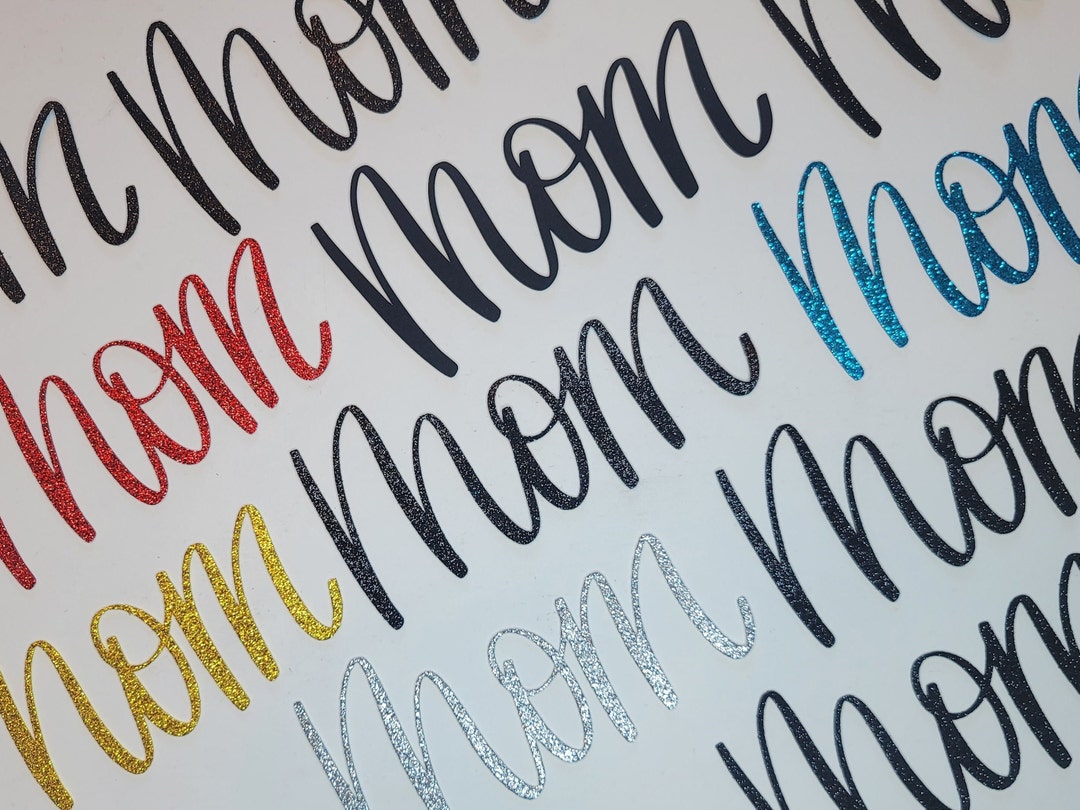 mom
mom
mom
mom
mom
mom
mom
mom
mom